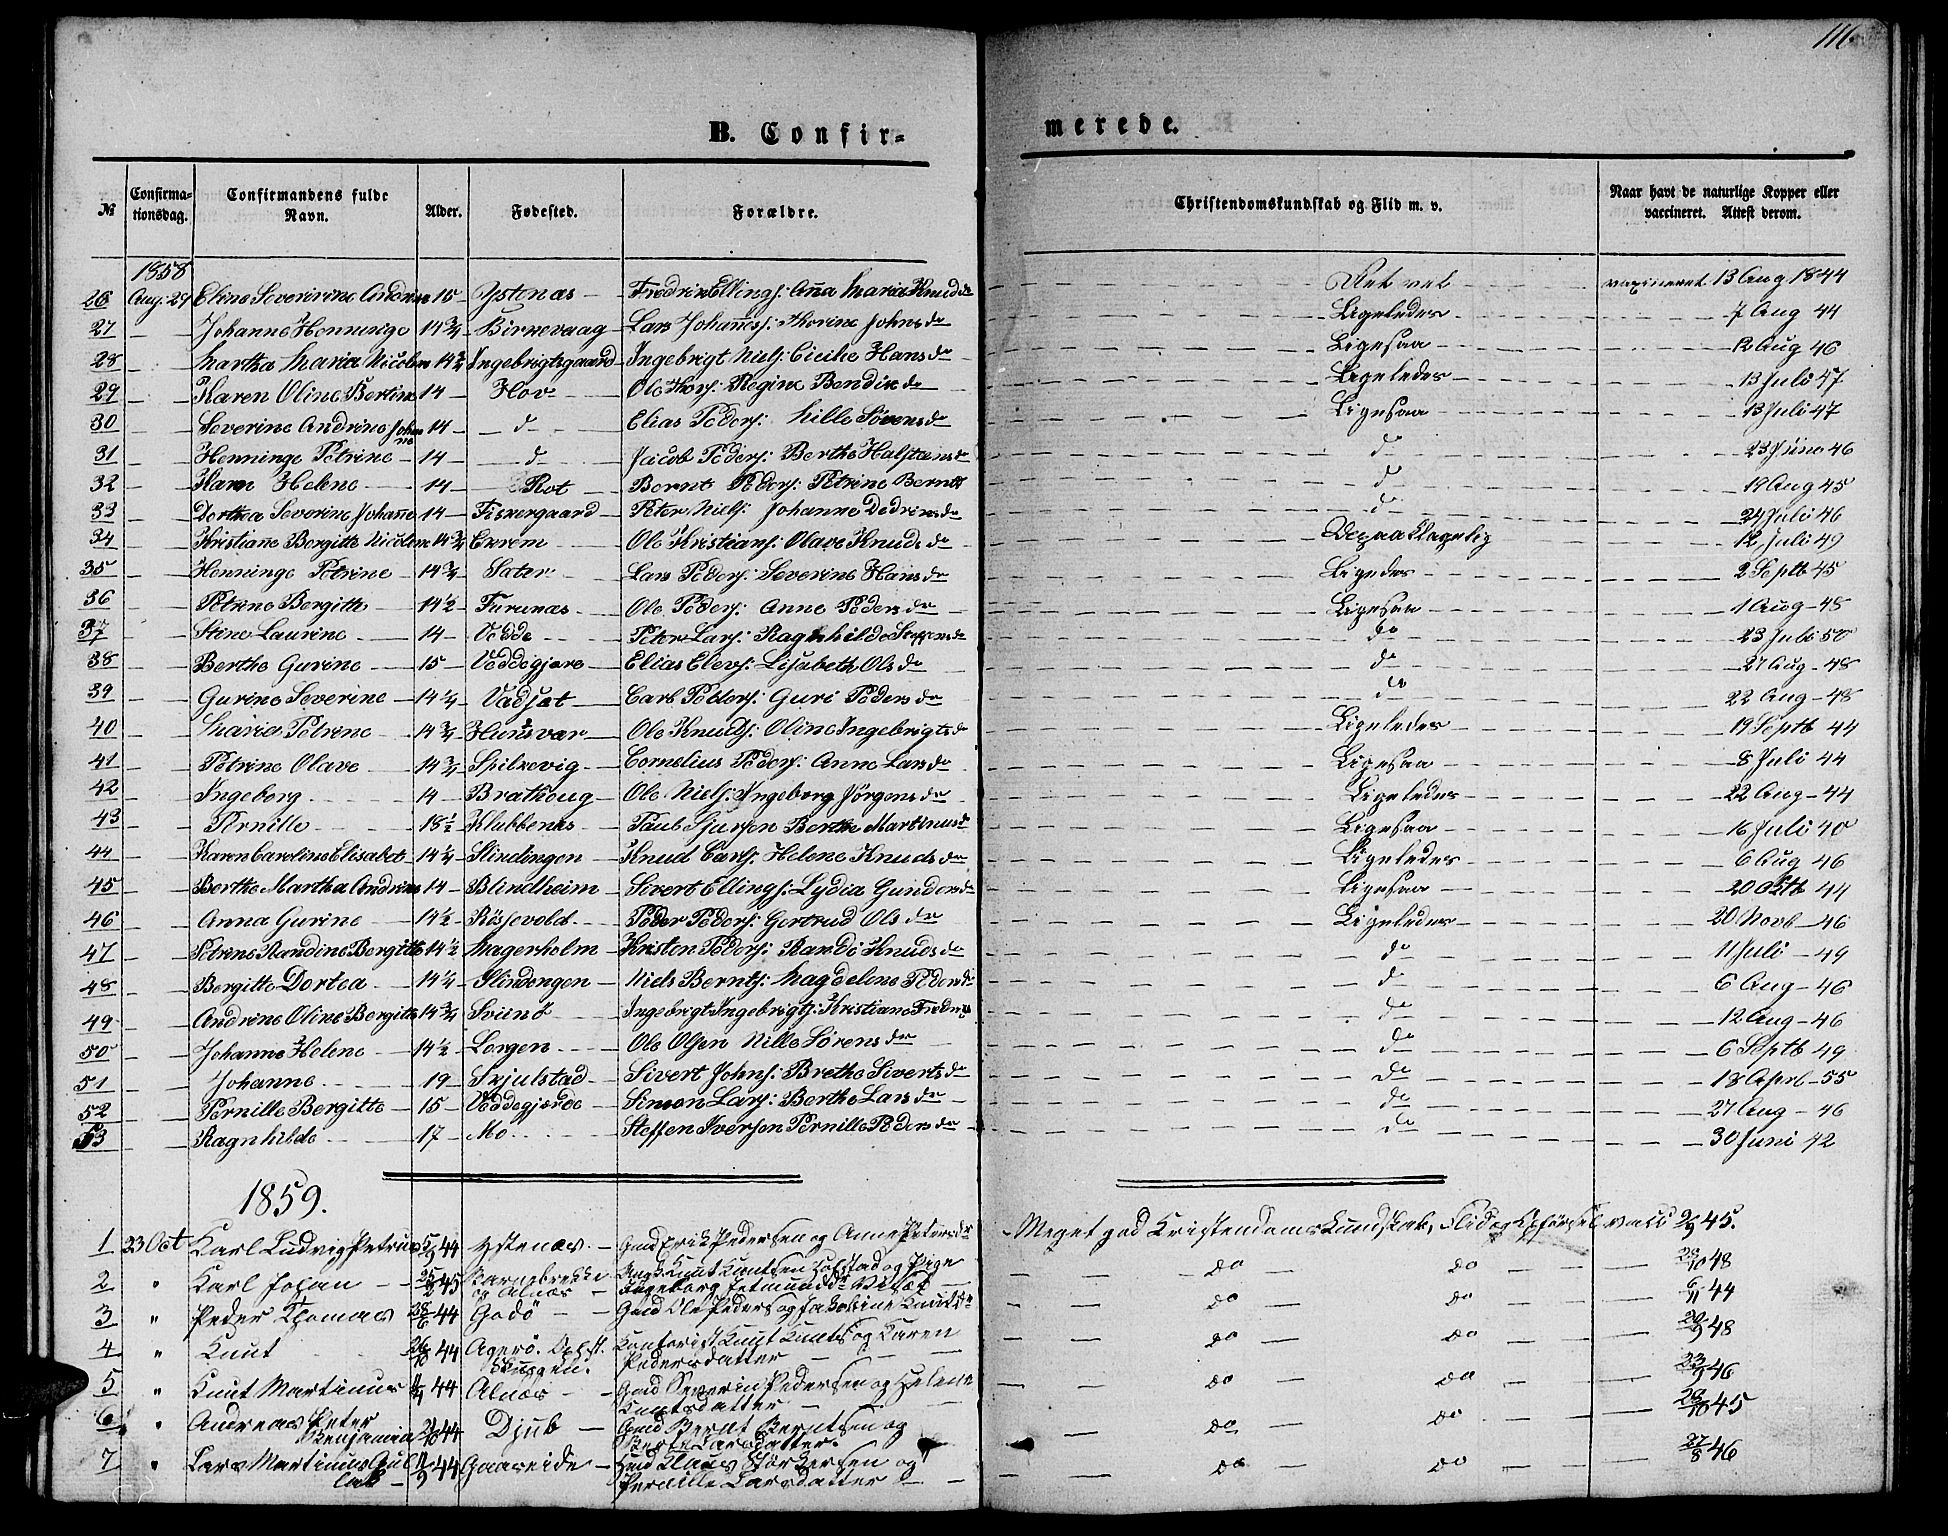 111.
B. Confir-
merede.
№ Confirma-tionsdag. Confirmandens fulde Navn. Alder. Fødested. Forældre. Christendomskundskab og Flid m. v. Naar havt de naturlige Kopper eller vaccineret. Attest derom.
1858
26 Aug. 29 Eline Severine 15 Ystenæs Elling: Anna Maria Knuds dr vaxineret 13 Aug 1844
27 Johanne Henninge 14 3/4 Birkevaag Lars Johaness: Thorine Johns dr Ligeledes 7 Aug 44
28 Martha Maria 14 3/4 Ingebrigtsgaard Ingebrigt Niels: Hans dr Ligesaa 12 Aug 46
29 Karen Oline Bertine 14 Hov Ole Thors: Regine dr Ligeledes 13 Juli 47
30 Severine Andrine Johanne 14 d Elias Peders: Nille Sørens dr Ligesaa 13 Juli 47
31 Henninge Petrine 14 d Jacob Peders: Berthe Halstens dr d 23 Juine 46
32 Karn Helene 14 Rot Bernt Peders: Petrine Bernts d 19 Aug 45
33 Dorthea Severine Johanne 14 Fiskergaard Peter Niels: Johanne dr d 24 Juli 46
34 Kristiane Bergitte 14 3/4 Ekrem Ole Kristians: Olave Knuds dr 12 Juli 49
35 Henninge Petrine 14 3/4 Sater Lars Peders: Severine Hans dr Ligedes 2 Septb 45
36 Petrine Bergitte 14 1/2 Furunæs Ole Peders: Anne Peders dr Ligesaa 1 Aug 48
37 Stine Laurine 14 Vedde Peter Lars: Ragnhilde Steffens dr do 23 Juli 50
38 Berthe Gurine 15 Veddegjære Elias Elevs: Lisabeth Ols dr do 27 Aug 48
39 Gurine Severine 14 1/4 Vadset Carl Petters: Guri Peders dr do 22 Aug 48
40 Maria Petrine 14 3/4 Hunsvær Ole Knuds: Oline Ingebrigts dr Ligeledes 19 Septb 44
41 Petrine Olave 14 3/4 Spilkevig Cornelius Peders: Anne Lars dr Ligesaa 8 Juli 44
42 Ingeborg 14 Brathoug Ole Niels: Ingeborg Jørgens dr Ligeledes 22 Aug 44
43 Pernille 18 1/2 Klubbenes Paul Sjursen Berthe Martinus dr Ligesaa 16 Juli 40
44 Karen Caroline Elisabet 14 1/4 Slindingen Knud Carls: Helene Knuds dr Ligeledes 6 Aug 46
45 Berthe Martha Andrine 14 Blindheim Sivert Ellings: Lydia Gunders dr Ligesaa 20 Oktb 44
46 Anna Gurine 14 1/2 Røsevold Peder Peders: Gertrud Ols dr Ligeledes 20 Novb 46
47 Petrine Randine Bergitte 14 1/2 Magerholm Kristen Peders: Randi Knuds dr do 11 Juli 49
48 Bergitte Dortea 14 1/4 Slindengen Niels Bernts: Magdelene Peders dr d 6 Aug 46
49 Andrine Oline Bergitte 14 3/4 Ingebrigt Ingebrigts: Kristiane do 12 Aug 46
50 Johanne Helene 14 1/2 Lorgen Ole Olsen Nille Sørens dr do 6 Septb 49
51 Johanne 19 Skjulstad Sivert Johns: Brethe Siverts dr do 18 Aprl 55
52 Pernille Bergitte 15 Veddegjerde Simon Lars: Berthe Lars dr do 27 Aug 46
53 Ragnhilde 17 Mo Steffen Iversen Pernille Peders dr do 30 Juni 42
1859.
1 23 Oct Karl Ludvig Petrus 5/9 44 Ystenæs. Gmd Erik Pedersen og Anne Peters dr Meget god Kristendomskundskab, Flid og Opførsel vacc 2/9 45.
2 " Karl Johan 45 og Alnæs Knut Knutsen og Pige Ingeborg do do 28/10 48
3 " Peder Thomas 28/6 44 Godö Gmd Ole Peders og Jakobine Knuts dr do do 6/11 44
4 " Knut 26/10 44 Agerö. Knut Knuts og Karen Pedersdatter do do 20/9 48
5 " Knut Martinus 44 Alnæs Gmd Severin Pedersen og Helene Knutsdatter do do 23/9 46
6 " Andreas Peter Benjamin 44 Djub Gmd Bernt Berntsen og Berte Larsdatter. do do 28/10 45
7 " Lars Martinus 11/9 44 Gaaseide Gmd Klaus Storkersen og Pernille Larsdatter do do 27/8 46